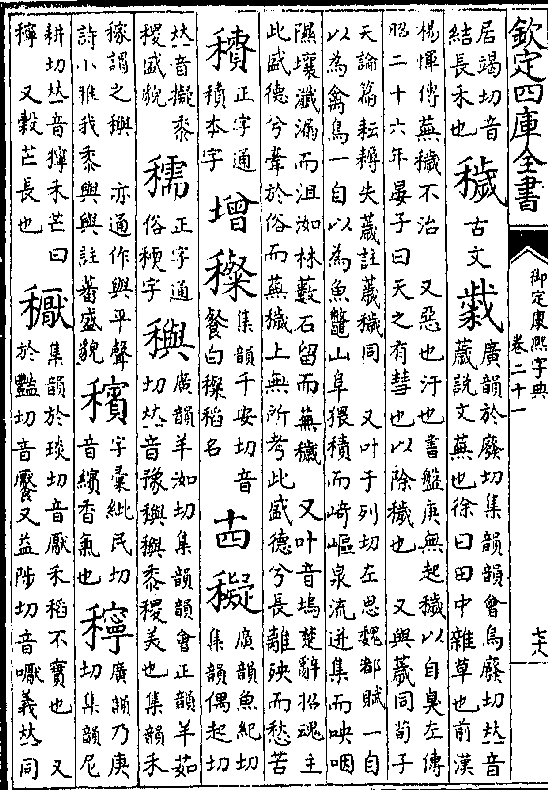 欽定四庫全書 御定康熙字典 卷二十一
居竭切音
結長禾也
穢古文
廣韻於廢切集韻韻會烏廢切𠀤音
薉說文蕪也徐曰田中雜草也前漢
楊惲傳蕪穢不治 又惡也汙也書盤庚無起穢以自臭左傳
昭二十六年晏子曰天之有彗也以除穢也 又與薉同荀子
天論篇耘耨失薉註薉穢同 又叶于列切左思魏都賦一自
以為禽鳥一自以為魚鼈山阜猥積而崎嶇泉流迸集而咉咽
隰壤瀸漏而沮洳林藪石留而蕪穢 又叶音塢楚辭招魂主
此盛德兮牽於俗而蕪穢上無所考此盛德兮長離殃而愁苦
正字通
積本字
增
集韻千安切音
餐白 稻名
十四
廣韻魚紀切
集韻偶起切
𠀤音擬黍
稷盛貌
穤
正字通
俗稬字
穥
廣韻羊洳切集韻韻會正韻羊茹
切𠀤音豫穥穥黍稷美也集韻禾
稼謂之穥 亦通作與平聲
詩小雅我黍與與註蕃盛貌
穦
字彙紕民切
音繽香氣也
廣韻乃庚
切集韻尼
耕切𠀤音獰禾芒曰
又穀芒長也
集韻於琰切音厭禾稻不實也 又
於豔切音饜又益陟切音 義𠀤同